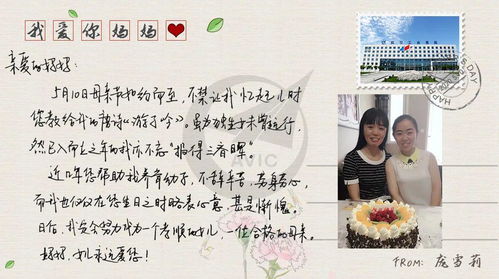 我爱你妈妈
亲爱的妈妈:
5月10日母亲节如约而至,不禁让我忆起儿时
您教给我的唐诗《游子吟》。虽为独生子未曾远行,
然已入而立之年的我亦不忘"报得三春晖"
近几年您帮助我养育幼子,不辞辛苦,劳身劳心,
而我也仅仅在您生日之时略表心意,甚是惭愧。
日后,我定会努力成为一个孝顺的女儿,一位合格的母亲。
妈妈,女儿永远爱您!
AVIC
FROM: 庞雪莉